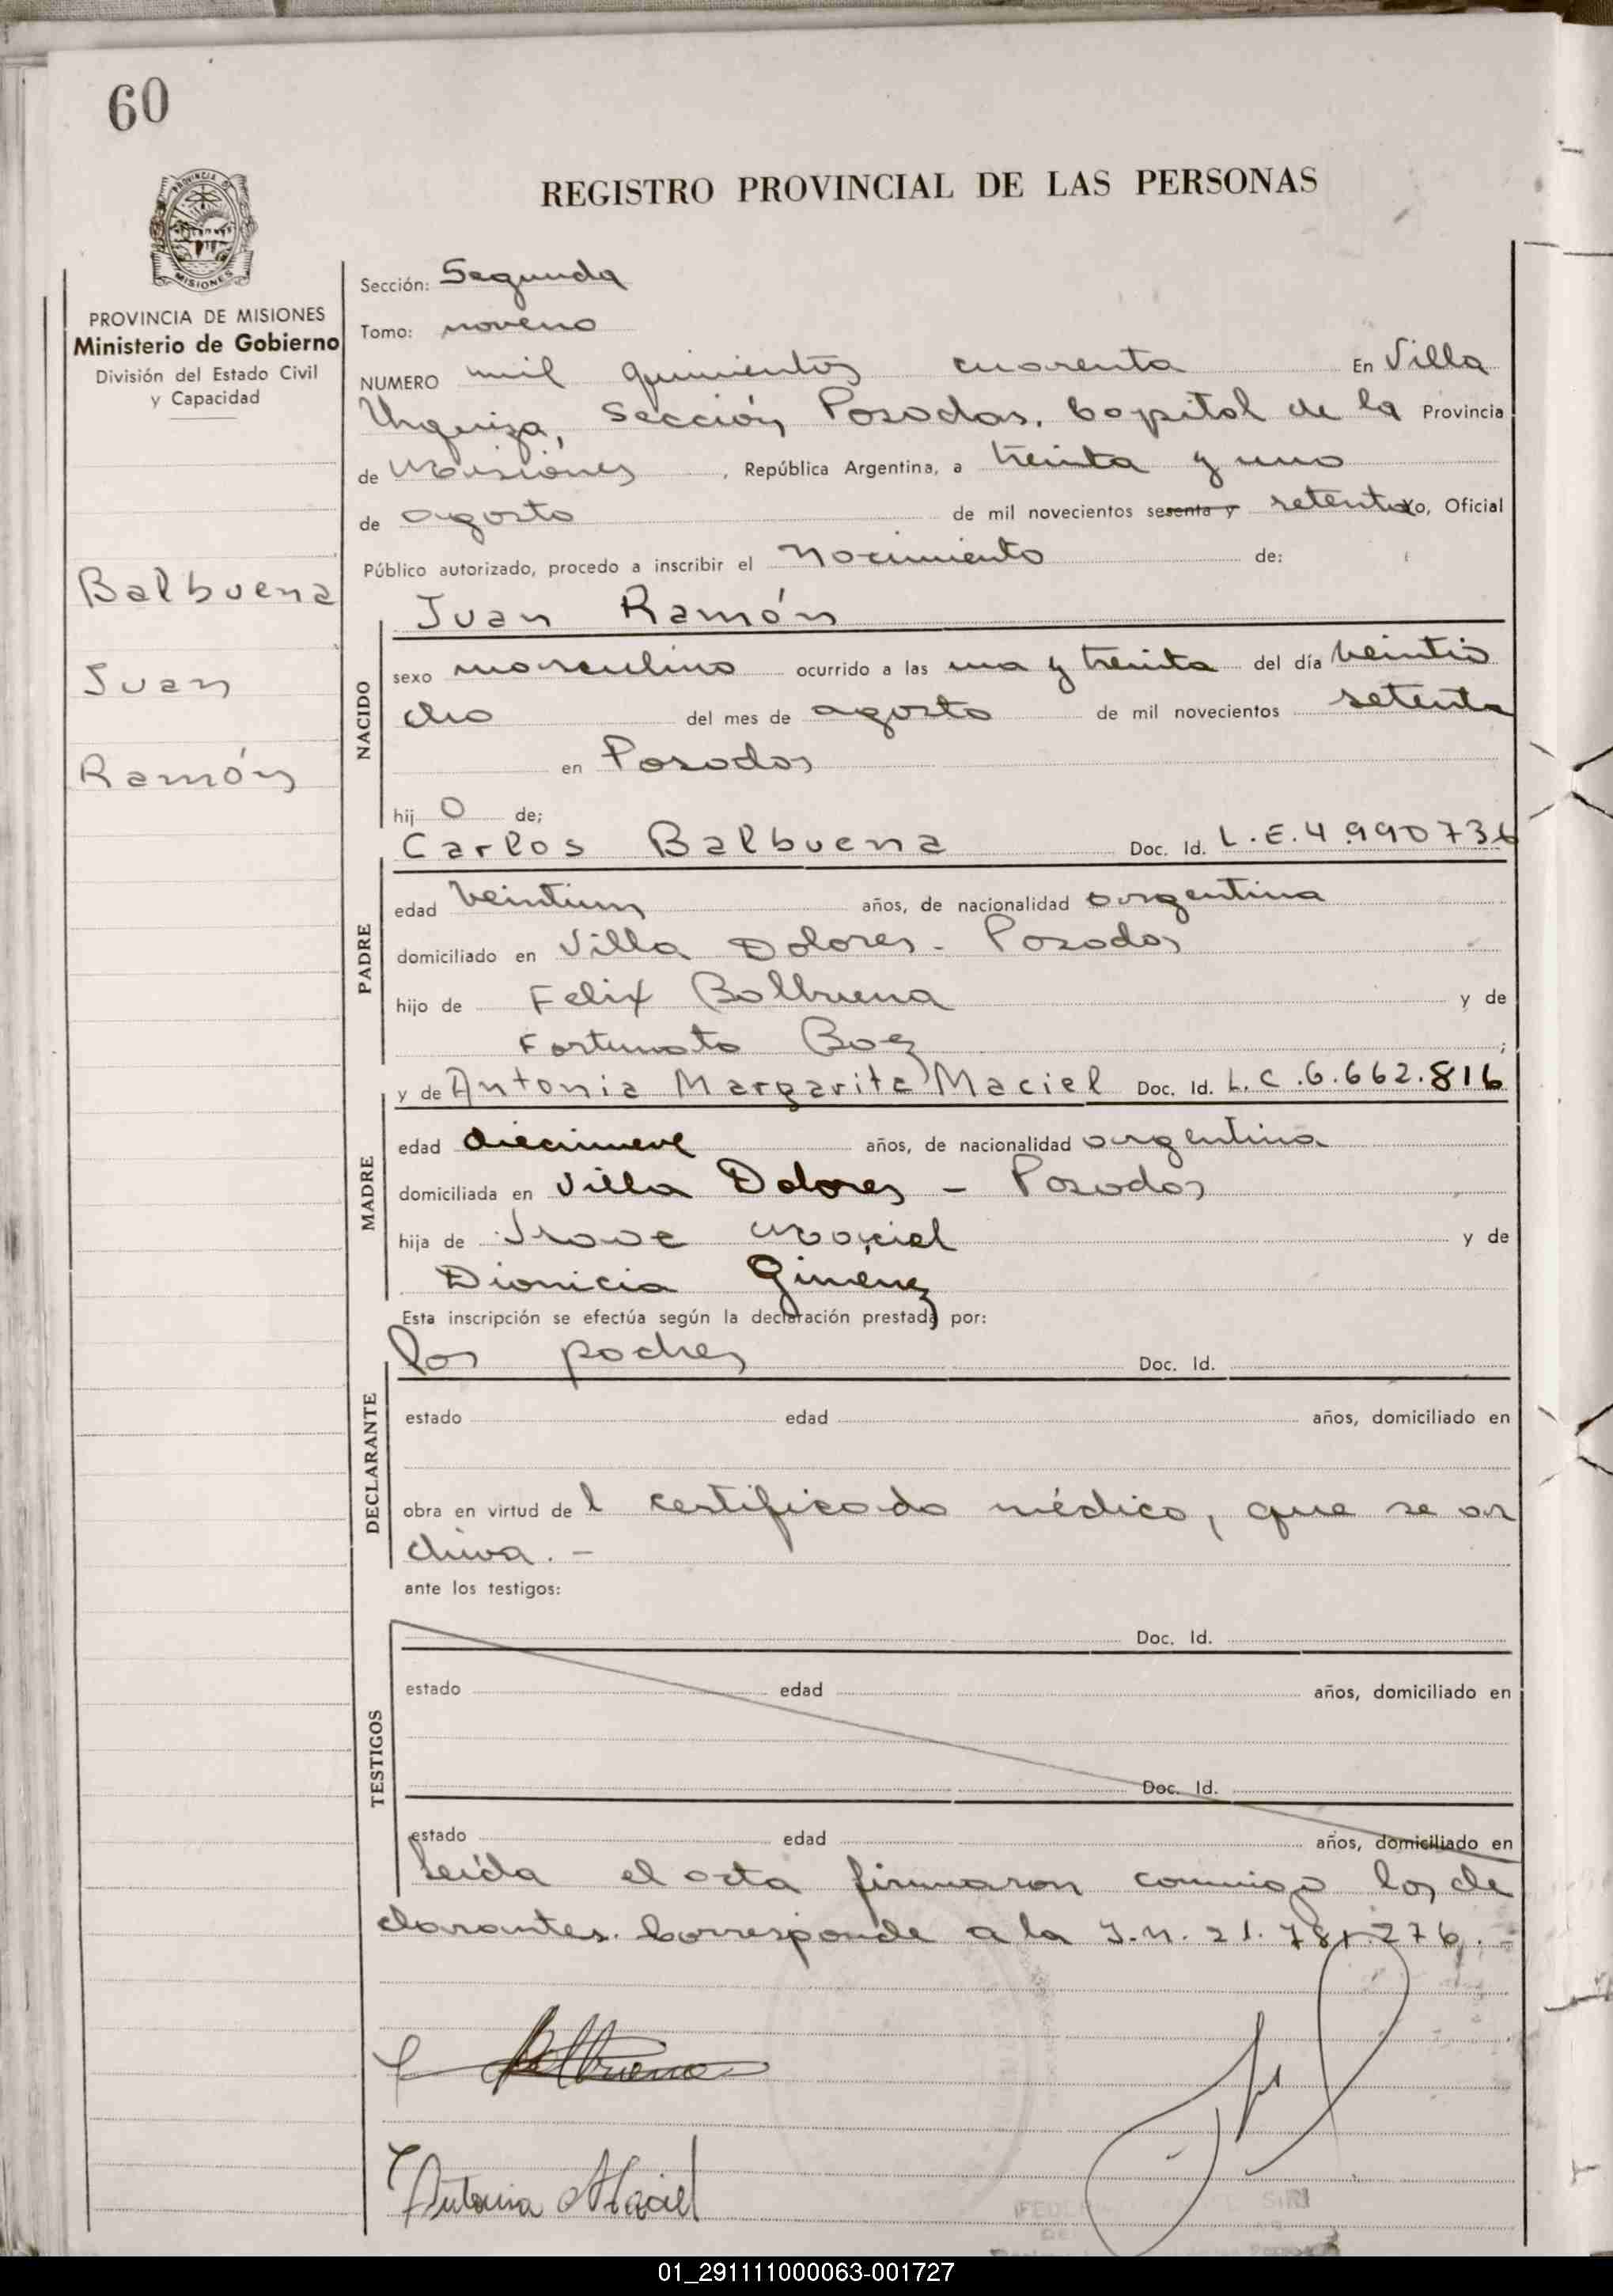 60
PROVINCIA DE
MISIONES
REGISTRO PROVINCIAL DE LAS PERSONAS
PROVINCIA DE MISIONES
Ministerio de Gobierno
División del Estado Civil
y Capacidad
Balbuena
Juan
Ramón
Sección: Segunda
Tomo: noveno
NUMERO mil quinientos cuarenta En Villa
Urquiza, Sección Posadas, Capital de la Provincia
de Misiones , República Argentina, a treinta y uno
de agosto de mil novecientos sesenta y setenta yo, Oficial
Público autorizado, procedo a inscribir el Nacimiento de:
Juan Ramón
NACIDO
sexo masculino ocurrido a las una y treinta del día veintio
cho del mes de agosto de mil novecientos setenta
en Posadas
hij o de;
Carlos Balbuena Doc. Id. L.E. 4.990736
PADRE
edad veintiun años, de nacionalidad argentina
domiciliado en Villa Dolores - Posadas
hijo de Felix Balbuena y de
Fortunata Baez ;
y de Antonia Margarita Maciel Doc. Id. L.C.6.662.816
MADRE
edad diecinueve años, de nacionalidad argentina
domiciliada en Villa Dolores - Posadas
hija de Maciel y de
Dionicia Giménez
Esta inscripción se efectúa según la declaración prestada por:
los padres Doc. Id.
DECLARANTE
estado edad años, domiciliado en
obra en virtud de l certificado médico, que se ar
chiva. -
ante los testigos:
Doc. Id.
TESTIGOS
estado edad años, domiciliado en
Doc. Id.
estado edad años, domiciliado en
Leída el acta firmaron conmigo los de
clarantes. Corresponde a la I.N. 21.781.276. -
Balbuena
Antonia Maciel
01_291111000063-001727